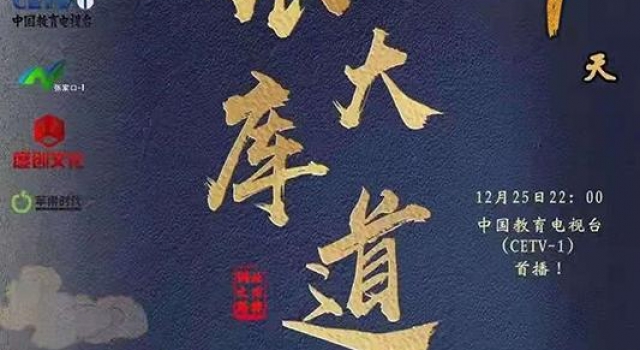 CETV 1
中国教育电视台
张家口-1
度创文化
苹果时代
库
大
道
天
12月25日22：00
中国教育电视台
(CETV-1)
首播！